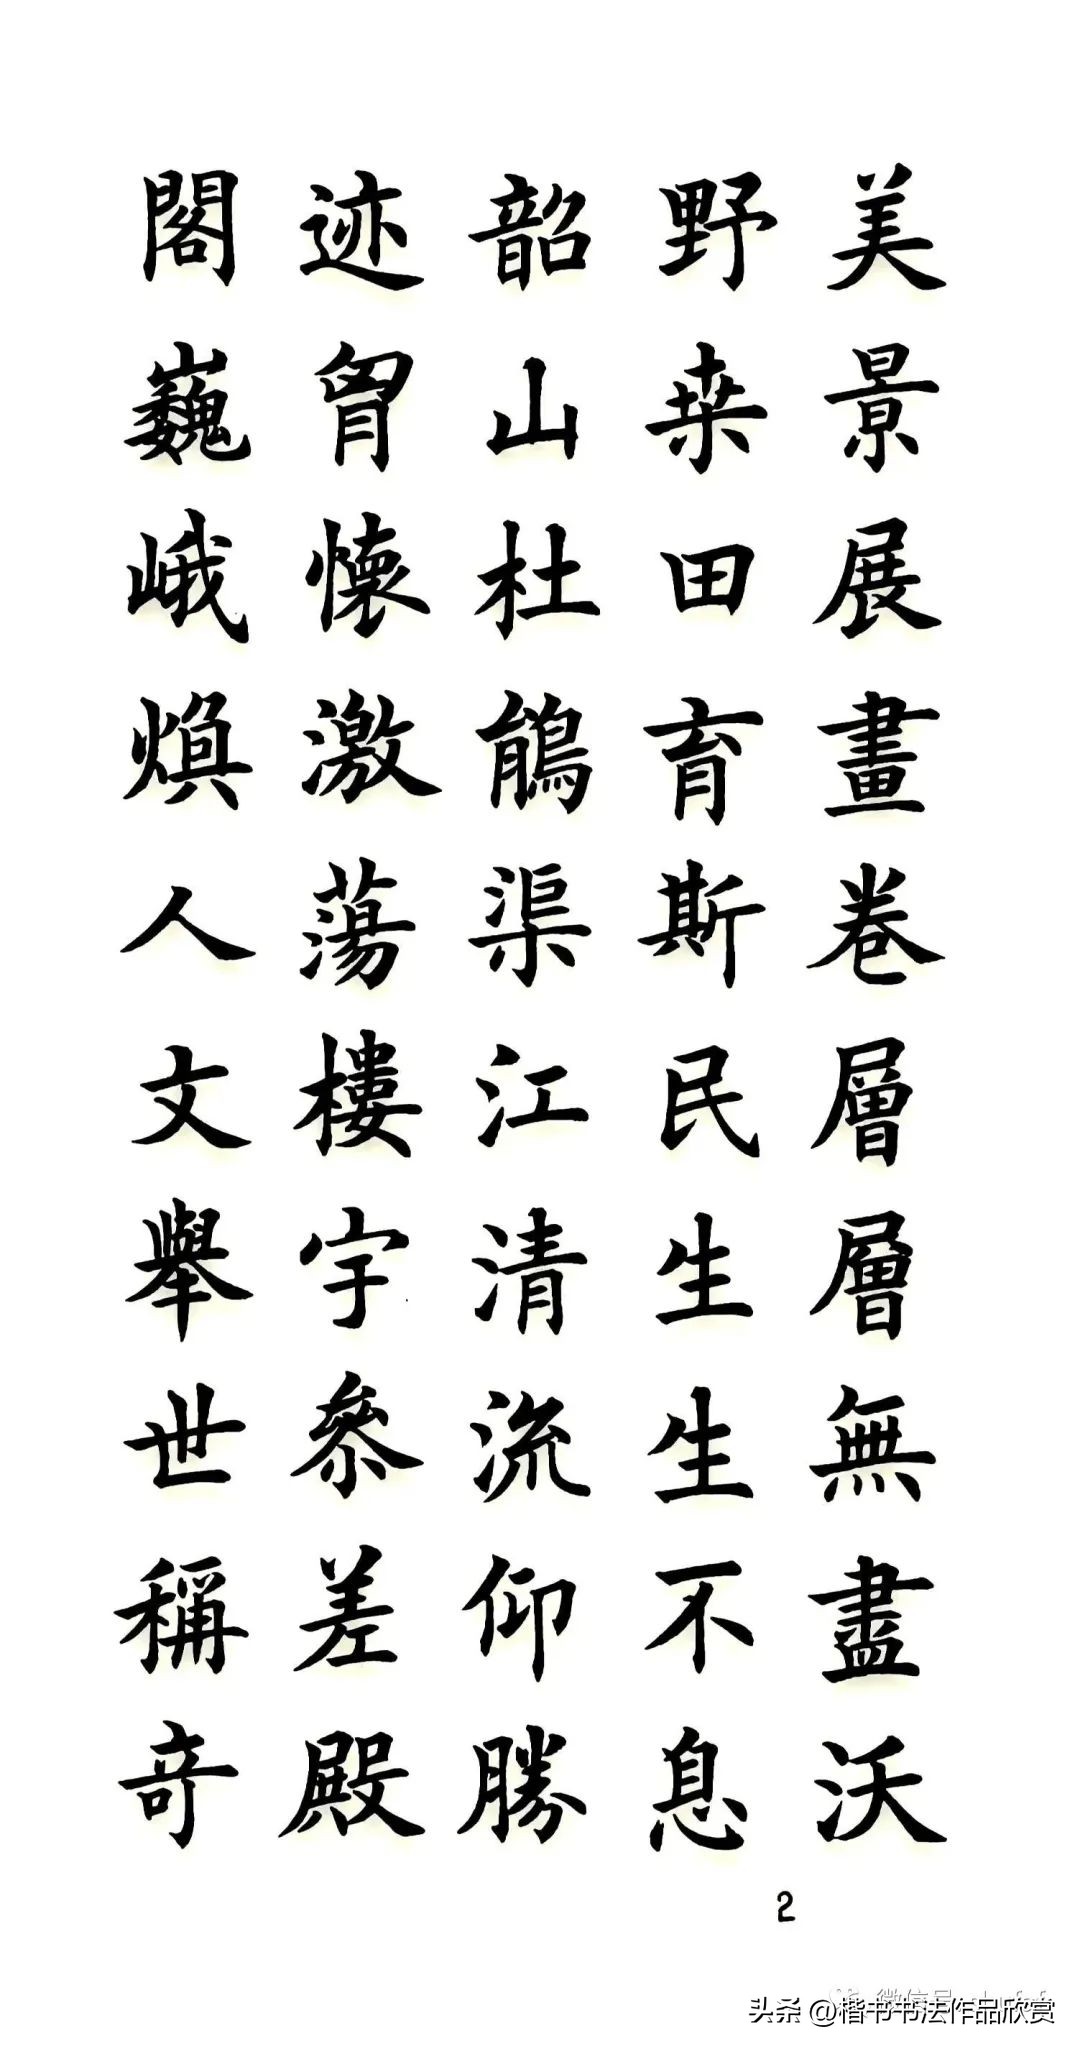 美景展畫卷層層無盡沃
野桒田育斯民生生不息
韶山杜鵑渠江清流仰勝
迹胷懷激蕩樓宇參差殿
閣巍峨煥人文舉世稱奇
2
头条 @楷书书法作品欣赏